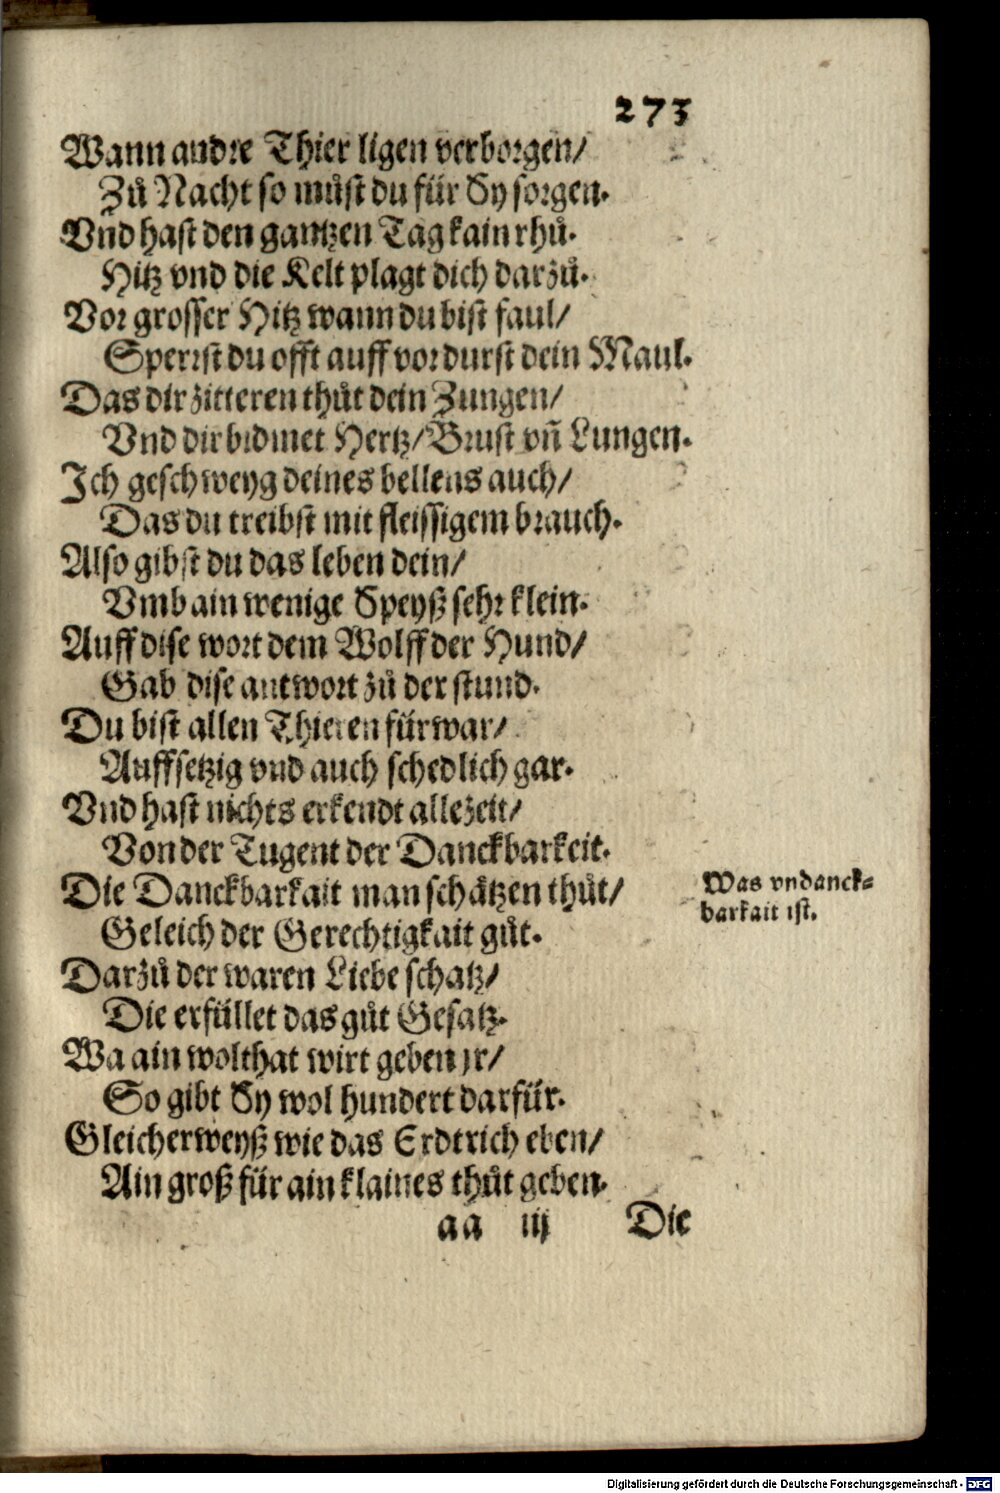 273
Wann andre Thier ligen verborgen/
Zů Nacht so můst du für Sy sorgen.
Vnd hast den gantzen Tag kain rhů.
Hitz vnd die Kelt plagt dich darzů.
Vor grosser Hitz wann du bist faul/
Sperrst du offt auff vor durst dein Maul.
Das dir zitteren thůt dein Zungen/
Vnd dir bidmet Hertz/Brust vñ Lungen.
Ich geschweyg deines bellens auch/
Das du treibst mit fleissigem brauch.
Also gibst du das leben dein/
Vmb ain wenige Speyß sehr klein.
Auff dise wort dem Wolff der Hund/
Gab dise antwort zů der stund.
Du bist allen Thieren fürwar/
Auffsetzig vnd auch schedlich gar.
Vnd hast nichts erkendt allezeit/
Von der Tugent der Danckbarkeit.
Die Danckbarkait man schätzen thůt/
Geleich der Gerechtigkait gůt.
Darzů der waren Liebe schatz/
Die erfüllet das gůt Gesatz.
Wa ain wolthat wirt geben jr/
So gibt Sy wol hundert darfür.
Gleicherweyß wie das Erdtrich eben/
Ain groß für ain klaines thůt geben.
Was vndanck-
barkait ist.
aa iij Die
Digitalisierung gefördert durch die Deutsche Forschungsgemeinschaft - DFG